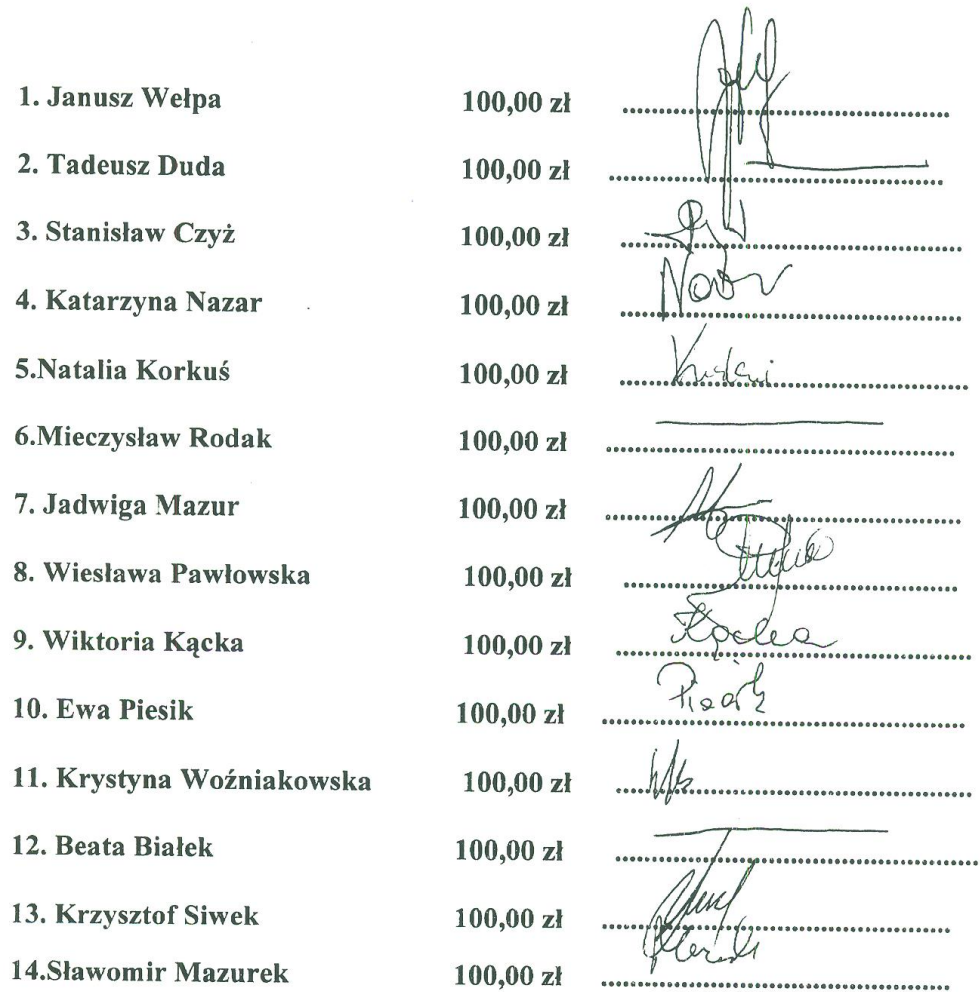 1. Janusz Wełpa 100,00 zł ........................................
2. Tadeusz Duda 100,00 zł ........................................
3. Stanisław Czyż 100,00 zł ........................................
4. Katarzyna Nazar 100,00 zł ........................................
5.Natalia Korkuś 100,00 zł ........................................
6.Mieczysław Rodak 100,00 zł ........................................
7. Jadwiga Mazur 100,00 zł ........................................
8. Wiesława Pawłowska 100,00 zł ........................................
9. Wiktoria Kącka 100,00 zł Kącka ........................................
10. Ewa Piesik 100,00 zł ........................................
11. Krystyna Woźniakowska 100,00 zł ........................................
12. Beata Białek 100,00 zł ........................................
13. Krzysztof Siwek 100,00 zł ........................................
14.Sławomir Mazurek 100,00 zł ........................................